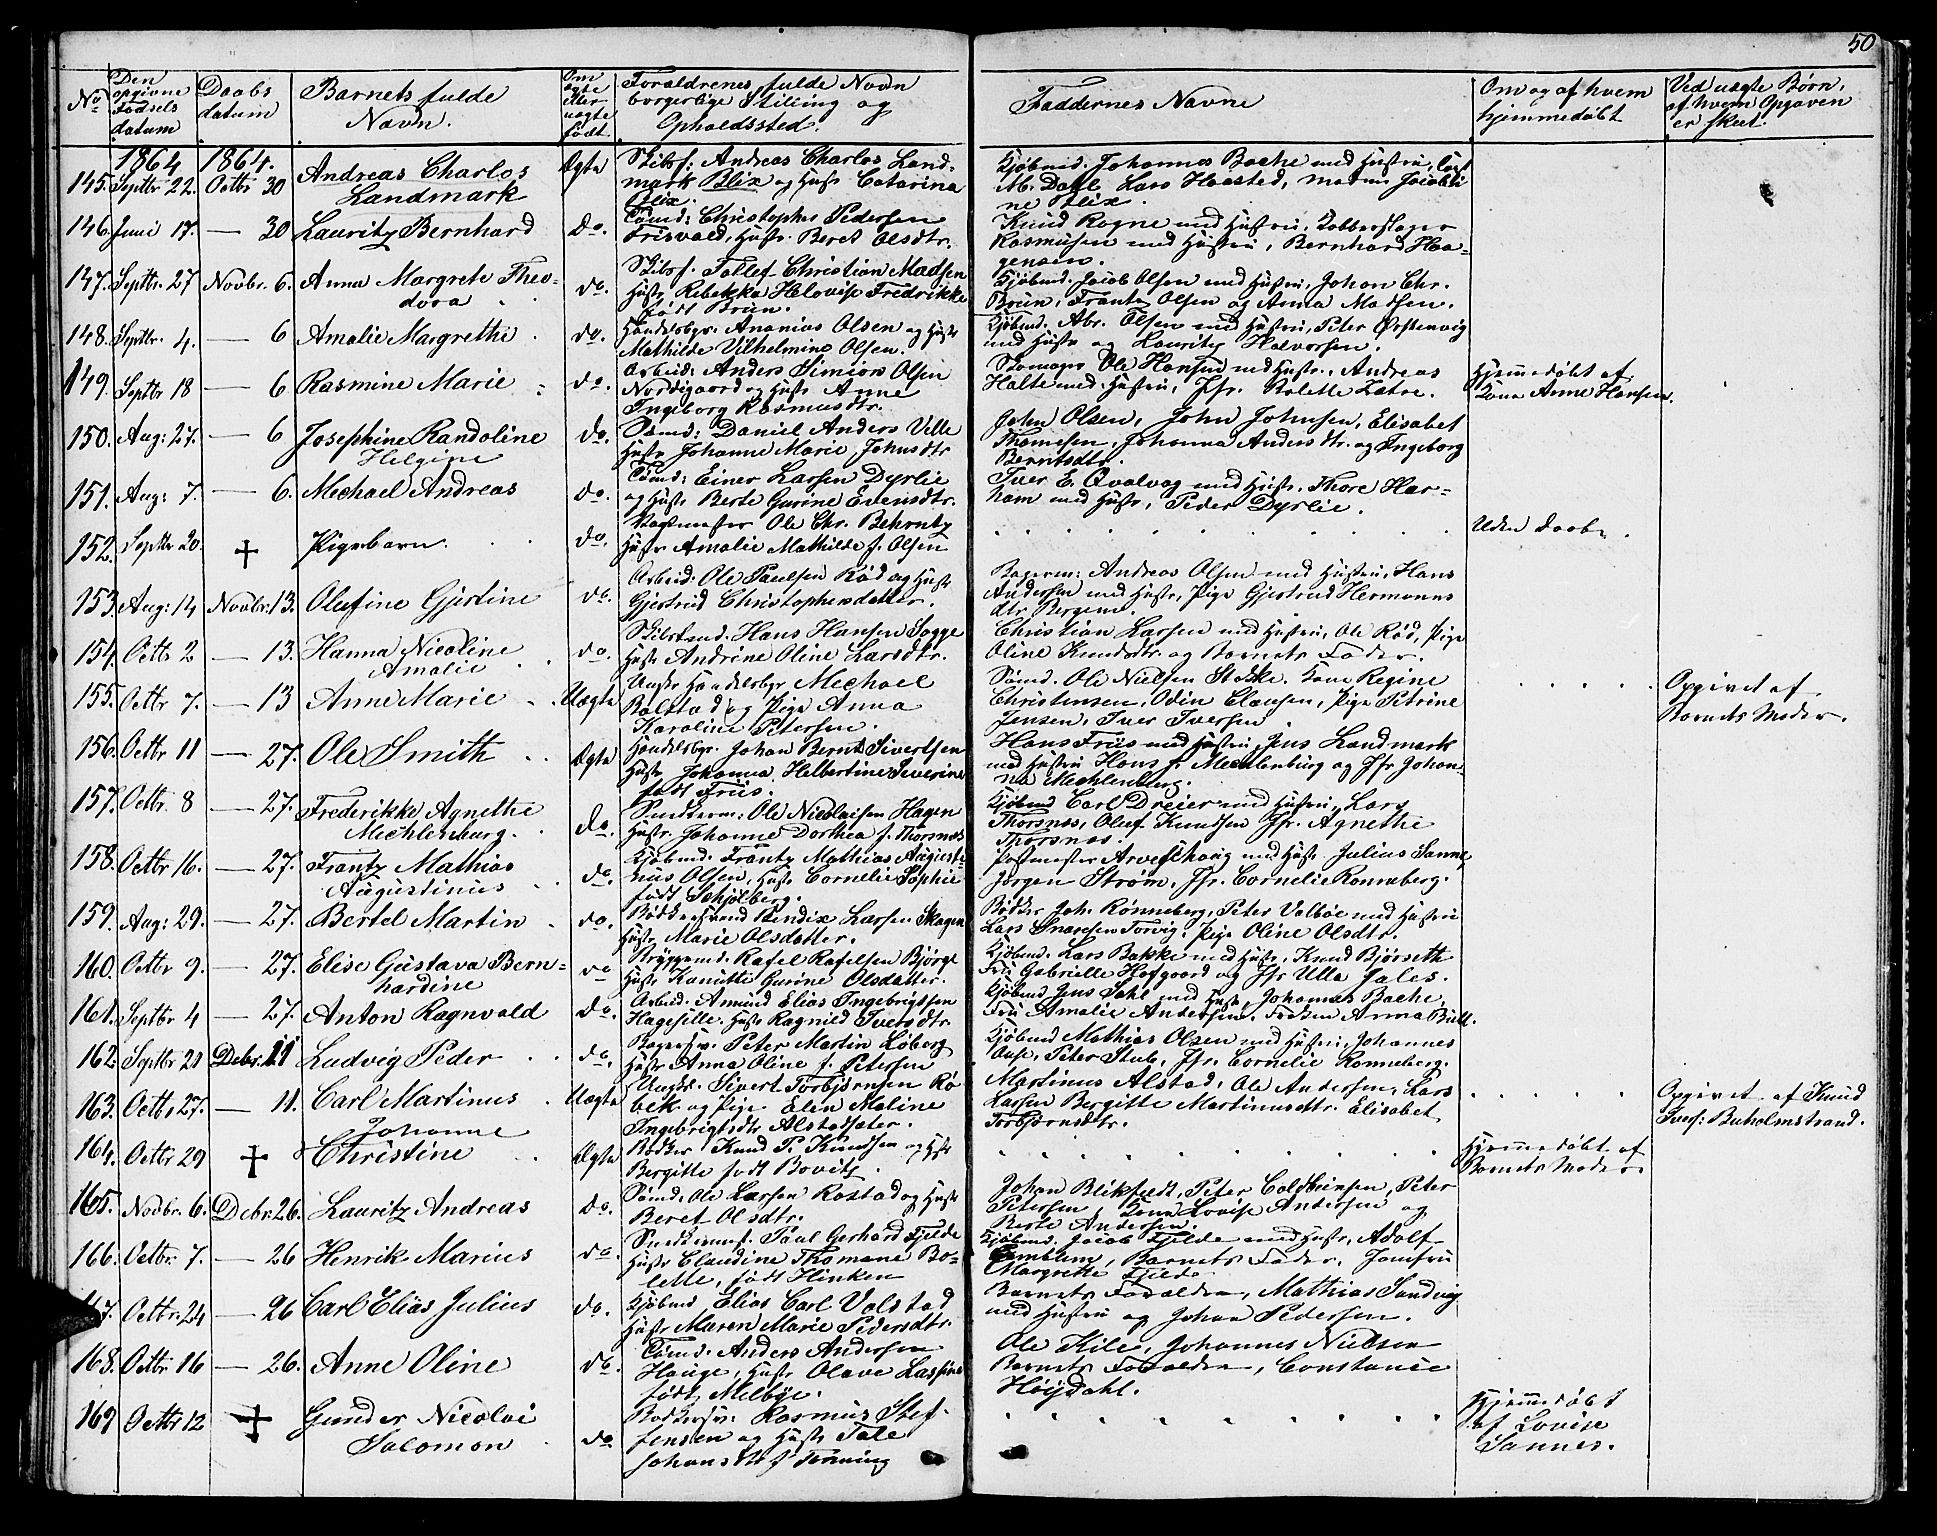 50
No
Den opgivne Fødsels datum
Daabs datum
Barnets fulde Navn.
Om ægte eller uægte født.
Forældrenes fulde Navn borgerlige Stiling og Opholdssted.
Faddernes Navne
Om og af hvem hjemmedøbt
Ved uægte Børn, af hvem Opgaven er skeet.
1864 1864.
145. Septbr 22. Octbr 30 Andreas Charlos Landmark Ægte Skibsf: Andreas Charlos Landmark Blix og Hustr Catarina Blix. Kjøbmd. Johannes Backe med Hustru, M. Dahl Lars Haasted, Jacobine Blix.
146. Juni 17. — 30 Lauritz Bernhard do. Tømd: Christopher Pedersen Frisvold, Hustr. Beret Olsdtr. Knud Rogne med Hustru, Kobberslager Rasmusen med Hustru, Bernhard Haagensen.
147. Septbr. 27 Novbr. 6. Anna Margrete Theodora do. Skibsf. Tollef Christian Madsen Hustr Rebekka Helovise Fredrikke født Brun. Kjøbmd. Jacob Olsen med Hustru, Johan Chr. Brun, Frantz Olsen og Anna Madsen.
148. Septbr. 4. — 6 Amalie Margrethe do. Handelsbgr. Ananias Olsen og Hustr Mathilde Vilhelmine Olsen. Kjøbmd. Abr. Olsen med Hustru, Peter Ørstenvig med Hustr og Lauritz Halvorsen.
149. Septbr 18 — 6 Rasmine Marie do. Arbeid: Anders Simion Olsen Nordigaard og Hustr Anne Ingeborg Rasmusdtr. Skomager Ole Hansen med Hustr., Andreas Holte med Hustru, Jfr. Rolette Lætre. Hjemmedøbt af Kone Anne Hansen.
150. Aug: 27. — 6 Josephine Randoline Helgine do. Sømd: Daniel Anders Ville Hustr Johanne Marie Johnsdtr John Olsen, John Johnsen, Elisabet Thomesen, Johanna Andersdtr. og Ingeborg Berntsdtr.
151. Aug: 7. — 6. Mechael Andreas do. Tømd: Einer Larsen Dyrlie og Hustr Berte Gurine Evensdtr. Iver E. Qvalvog med Hustr. Thore Harham med Hustr, Peder Dyrlie.
152. Septbr 20. † Pigebarn. do. Ole Chr. Behrentz Hustr Amalie Mathilde f. Olsen Uden Daab.
153. Aug: 14 Novbr: 13. Olufine Gjertine do. Arbeid: Ole Paulsen Rød og Hustr Gjertrud Christophersdatter. Bagerm: Andreas Olsen med Hustru, Hans Andersen med Hustr, Pige Gjertrud Hermannsdtr Bergem.
154. Octb 2 — 13. Hanna Nicoline Amalie do. Skibstmd. Hans Hansen Sogge Hustr Andrine Oline Larsdtr. Christian Larsen med Hustru, Ole Rød, Pige Oline Knudsdtr. og Barnets Fader.
155. Octbr 7. — 13 Anne Marie Uægte Ungkr Handelsbgr Mechael Bolstad og Pige Anna Karoline Petersen. Sømd. Ole Nielsen Stokke. Kone Regine Christensen, Odin Clausen, Pige Petrine Jensen, Iver Iversen. Opgivet af Barnets Moder.
156. Octbr 11 — 27. Ole Smith Ægte Handelsbgr. Johan Bernt Sivertsen Hustr Johanna Helbertine Severine født Friis. Hans Friis med Hustru, Jens Landmark med Hustru Hans f. Mechlenburg og Jfr Johanna Mechlenberg.
157. Octbr. 8 — 27. Frederikke Agnethe Mechlenburg. do. Snedkerm: Ole Nicolaisen Hagen Hustr. Johanne Dorthea f. Thorsnæs Kjøbmd Carl Dreier med Hustru, Lars Thorsnæs, Oluf Knudsen Jfr. Agnethe Thorsnæs.
158. Octbr 16. — 27. Frantz Mathias Augustinus do. Kjøbmd. Frantz Mathias Augustinus Olsen, Hustr Cornelie Sophie født Schjølberg. Postmester Arveschoug med Hustr Julius Sanne, Jørgen Strøm, Jfr. Cornelie Ronneberg.
159. Aug: 29. — 27. Bertel Martin do. Bødkersvend Bendix Larsen Skagen Hustr Marie Olsdatter. Bødker Joh. Rønneberg, Peter Valbøe med Hustru Lars Torvig. Pige Oline Olsdtr.
160. Octbr 9. — 27. Elise Gustava Bernhardine do Bryggemd. Rafel Rafelsen Bjørge Hustr Kanutte Gurine Olsdatter. Kjøbmd. Lars Bakke med Hustr, Knud Bjørseth Fru Gabrielle Hofgaard og Jfr Ulla Jales.
161. Septbr 4 — 27. Anton Ragnvald do. Arbeid. Amund Elias Ingebrigtsen Hagesille. Hustr Ragnild Iversdtr Kjøbmd Jens Dahl med Hustr, Johannes Backe, Fru Amalie Andersen, Frøken Anna Bull.
162. Septbr 21 Debr. 11 Ludvig Peder do. Bagersv. Peter Martin Løberg Hustr Anna Oline f. Petersen Kjøbmd Mathias Olsen med Hustru, Johannes Aase, Peter Stub, Jfr. Cornelie Ronneberg.
163. Octbr 27. — 11. Carl Martinus Uægte Ungkr. Sivert Torbjørnsen Røbek og Pige Elen Maline Ingebrigtsdtr Alstadsæter. Martinus Alstad, Ole Andersen, Lars Larsen Bergitte Martinusdtr. Elisabet Torbjørnsdtr. Opgivet af Knud Iversf: Buholmstrand.
164. Octbr 29 † Johanne Christine Ægte Bødker Knud P. Knudsen og Hustr Bergitte født Bovitz. Hjemmedøbt af Barnets Moder.
165. Novbr. 6. Debr. 26. Lauritz Andreas do. Sømd: Ole Larsen Rostad og Hustr Beret Olsdtr. Johan Blikfeldt, Peter Coldevinsen, Peter Petersen, Kone Lovise Andersen og Berte Andersen.
166. Octbr. 7. — 26 Henrik Marius do. Paul Gerhard Fjelde Hustr Claudine Thomane Bolette, født Hinken Kjøbmd. Jacob Fjelde med Hustr, Adolf Emblem, Barnets Fader, Jomfru Margrette Fjelde
167. Octbr. 24 — 26 Carl Elias Julius do. Kjøbmd Elias Carl Volstad Hustr Maren Marie Pedersdtr. Barnets Forældre, Mathias Sandvig med Hustru og Johan Pedersen.
168. Octbr 16 — 26. Anne Oline do. Tømd: Anders Andersen Hauge, Hustr Olave Laspine født Melbye. Ole Kile, Johannes Nielsen Barnets Forældre, Constance Høijdahl.
169 Octbr 12 † Gunder Nicolai Salomon do Bødkersv: Rasmus Steffensen og Hustr Tale Johansdtr f Tønning Hjemmedøbt af Lovise Sannes.